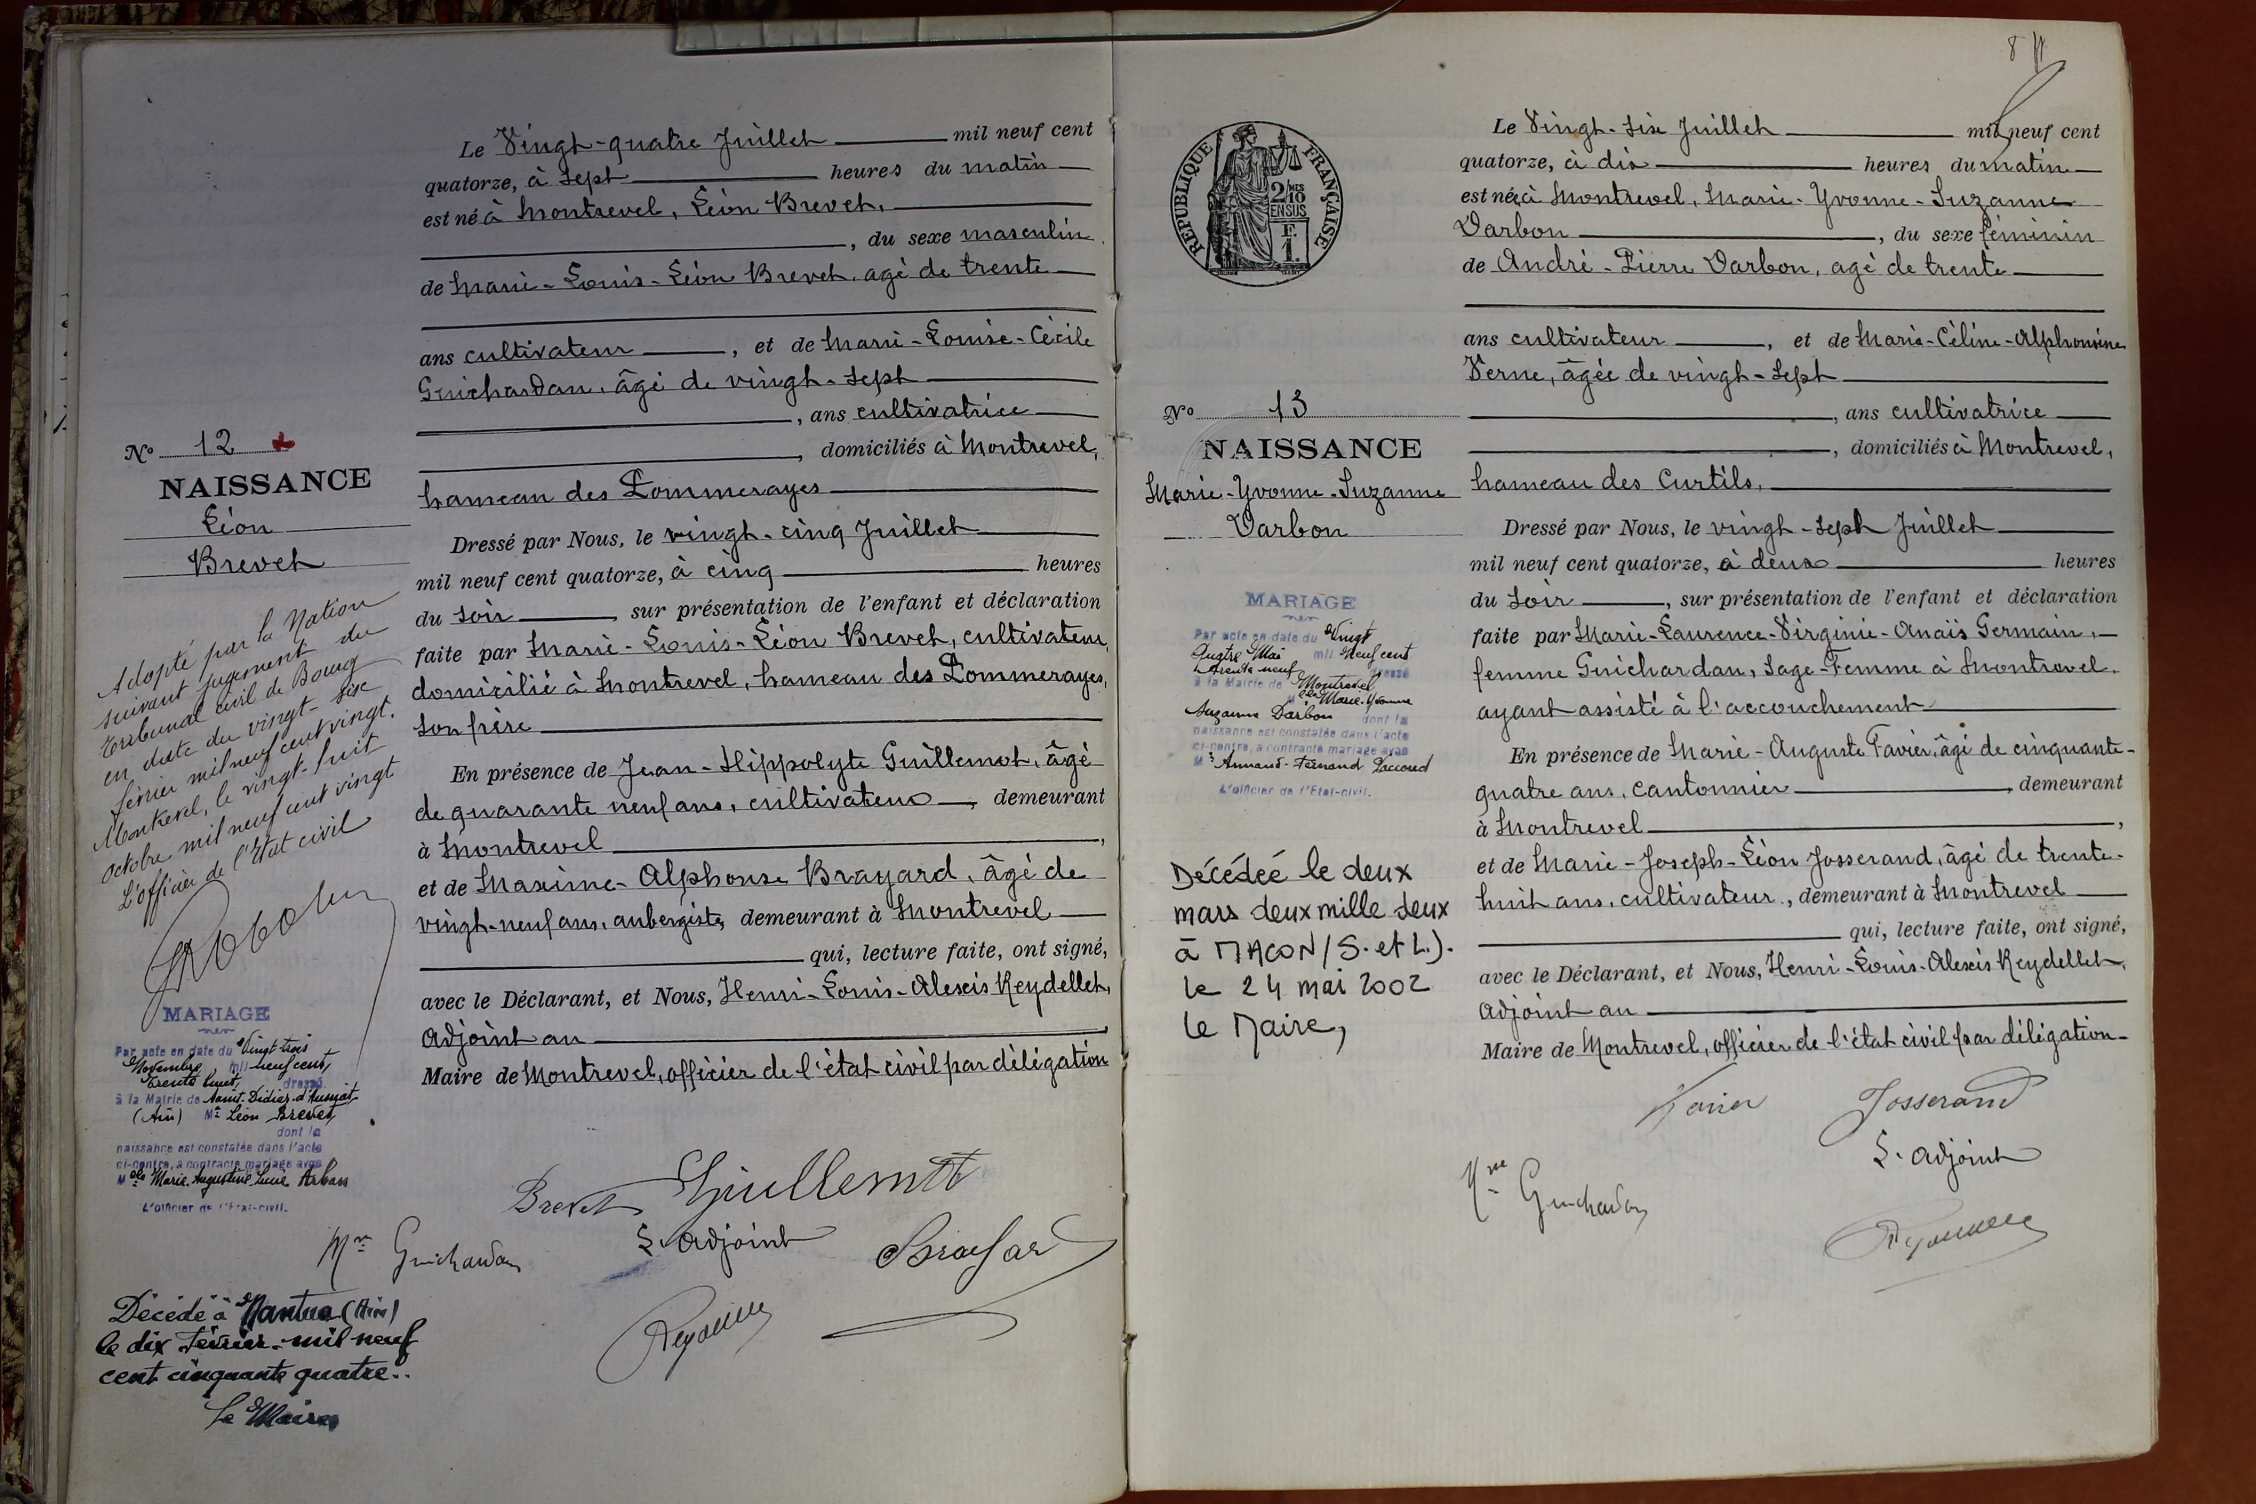 Le Vingt-quatre Juillet mil neuf cent
quatorze, à sept heures du matin
est né à Montrevel, Léon Brevet,
, du sexe masculin
de Marie-Louis-Léon Brevet, agé de trente
ans cultivateur, et de Marie-Louise-Cécile
Guichardan, âgé de vingt-sept
, ans cultivatrice
, domiciliés à Montrevel,
hameau des Pommerayes
Dressé par Nous, le vingt-cinq Juillet
mil neuf cent quatorze, à cinq heures
du soir, sur présentation de l'enfant et déclaration
faite par Marie-Louis-Léon Brevet, cultivateur,
domicilié à Montrevel, hameau des Pommerayes,
son père
En présence de Jean-Hippolyte Guillemot, âgé
de quarante neuf ans, cultivateur, demeurant
à Montrevel,
et de Maxime-Alphonse Brayard, âgé de
vingt-neuf ans, aubergiste, demeurant à Montrevel
qui, lecture faite, ont signé,
avec le Déclarant, et Nous, Henri-Louis-Alexis Reydellet,
adjoint au
Maire de Montrevel, officier de l'état civil par délégation
Brevet Guillemot
L'adjoint
Mme Guichardan
N° 12
NAISSANCE
Léon
Brevet
Adopté par la Nation
suivant jugement du
tribunal civil de Bourg
en date du vingt-six
février mil neuf cent vingt.
Montrevel, le vingt-huit
octobre mil neuf cent vingt
L'officier de l'Etat civil
MARIAGE
Par acte en date du Vingt trois
Novembre mil neuf cent
trente huit, dressé
à la Mairie de Saint-Didier-d'Aussiat
(Ain) Mr Léon Brevet
dont la
naissance est constatée dans l'acte
ci-contre, a contracté mariage avec
Melle Marie Augustine Lucie Arban
L'officier de l'Etat-civil.
Décédé à Nantua (Ain)
le dix Février mil neuf
cent cinquante quatre.
Le Maire
8
RÉPUBLIQUE FRANÇAISE
2/10 MES
EN SUS
F.
1.
Le Vingt-six Juillet mil neuf cent
quatorze, à dix heures du matin
est née à Montrevel, Marie-Yvonne-Suzanne
Darbon, du sexe féminin
de André-Pierre Darbon, agé de trente
ans cultivateur, et de Marie-Céline-Alphonsine
Verne, âgée de vingt-sept
, ans cultivatrice
, domiciliés à Montrevel,
hameau des Curtils,
Dressé par Nous, le vingt-sept Juillet
mil neuf cent quatorze, à deux heures
du soir, sur présentation de l'enfant et déclaration
faite par Marie-Laurence-Virginie-Anaïs Germain,
femme Guichardan, Sage-Femme à Montrevel,
ayant assisté à l'accouchement
En présence de Marie-Auguste Favier, âgé de cinquante-
quatre ans, cantonnier, demeurant
à Montrevel,
et de Marie-Joseph-Léon Josserand, âgé de trente-
huit ans, cultivateur, demeurant à Montrevel
qui, lecture faite, ont signé,
avec le Déclarant, et Nous, Henri-Louis-Alexis Reydellet,
adjoint au
Maire de Montrevel, officier de l'état civil par délégation
Favier Josserand
L'adjoint
Mme Guichardan
N° 13
NAISSANCE
Marie-Yvonne-Suzanne
Darbon
MARIAGE
Par acte en date du Vingt
Quatre Mai mil Neuf cent
trente neuf dressé
à la Mairie de Montrevel
Melle Marie-Yvonne
Suzanne Darbon dont la
naissance est constatée dans l'acte
ci-contre, a contracté mariage avec
Mr Armand-Fernand Paccoud
L'officier de l'Etat-civil.
Décédée le deux
mars deux mille deux
à MACON (S. et L.).
le 24 mai 2002
le Maire,